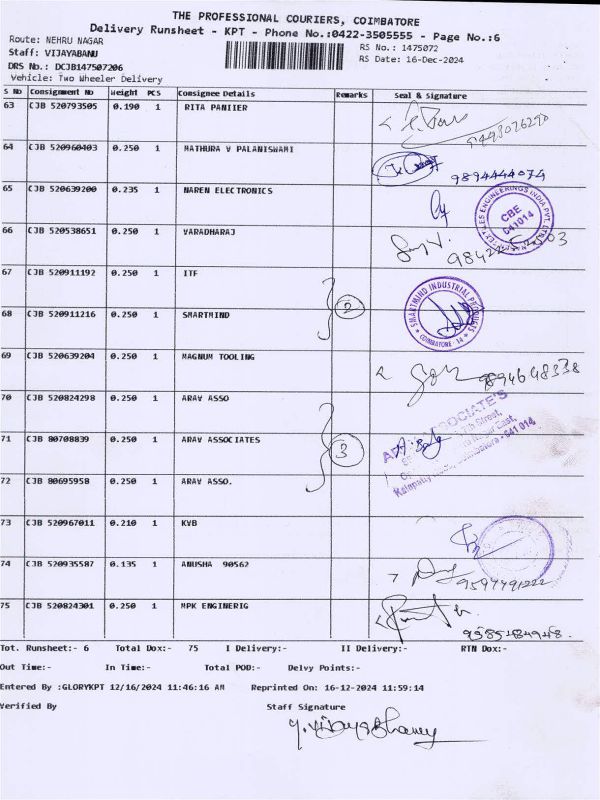 THE PROFESSIONAL COURIERS, COIMBATORE
Delivery Runsheet - KPT - Phone No.:0422-3505555 - Page No.:6
Route: NEHRU NAGAR
RS No.: 1475072
Staff: VIJAYABANU
RS Date: 16-Dec-2024
DRS No.: DCJB147507206
Vehicle: Two Wheeler Delivery
S No Consignment No Weight PCS Consignee Details Remarks Seal & Signature
63 CJB 520793505 0.190 1 RITA PANIIER
64 CJB 520960403 0.250 1 MATHURA V PALANISWAMI
9894444074
65 CJB 520639200 0.235 1 NAREN ELECTRONICS
CBE 641014
66 CJB 520538651 0.250 1 VARADHARAJ
67 CJB 520911192 0.250 1 ITF
2
SMARTMIND INDUSTRIAL PRODUCTS
COIMBATORE - 14
68 CJB 520911216 0.250 1 SMARTMIND
69 CJB 520639204 0.250 1 MAGNUM TOOLING
9894648338
70 CJB 520824298 0.250 1 ARAV ASSO
71 CJB 80708839 0.250 1 ARAV ASSOCIATES
3
72 CJB 80695958 0.250 1 ARAV ASSO.
73 CJB 520967011 0.210 1 KVB
74 CJB 520935587 0.135 1 ANUSHA 90562
75 CJB 520824301 0.250 1 MPK ENGINERIG
Tot. Runsheet:- 6 Total Dox:- 75 I Delivery:- II Delivery:- RTN Dox:-
Out Time:- In Time:- Total POD:- Delvy Points:-
Entered By :GLORYKPT 12/16/2024 11:46:16 AM Reprinted On: 16-12-2024 11:59:14
Verified By Staff Signature